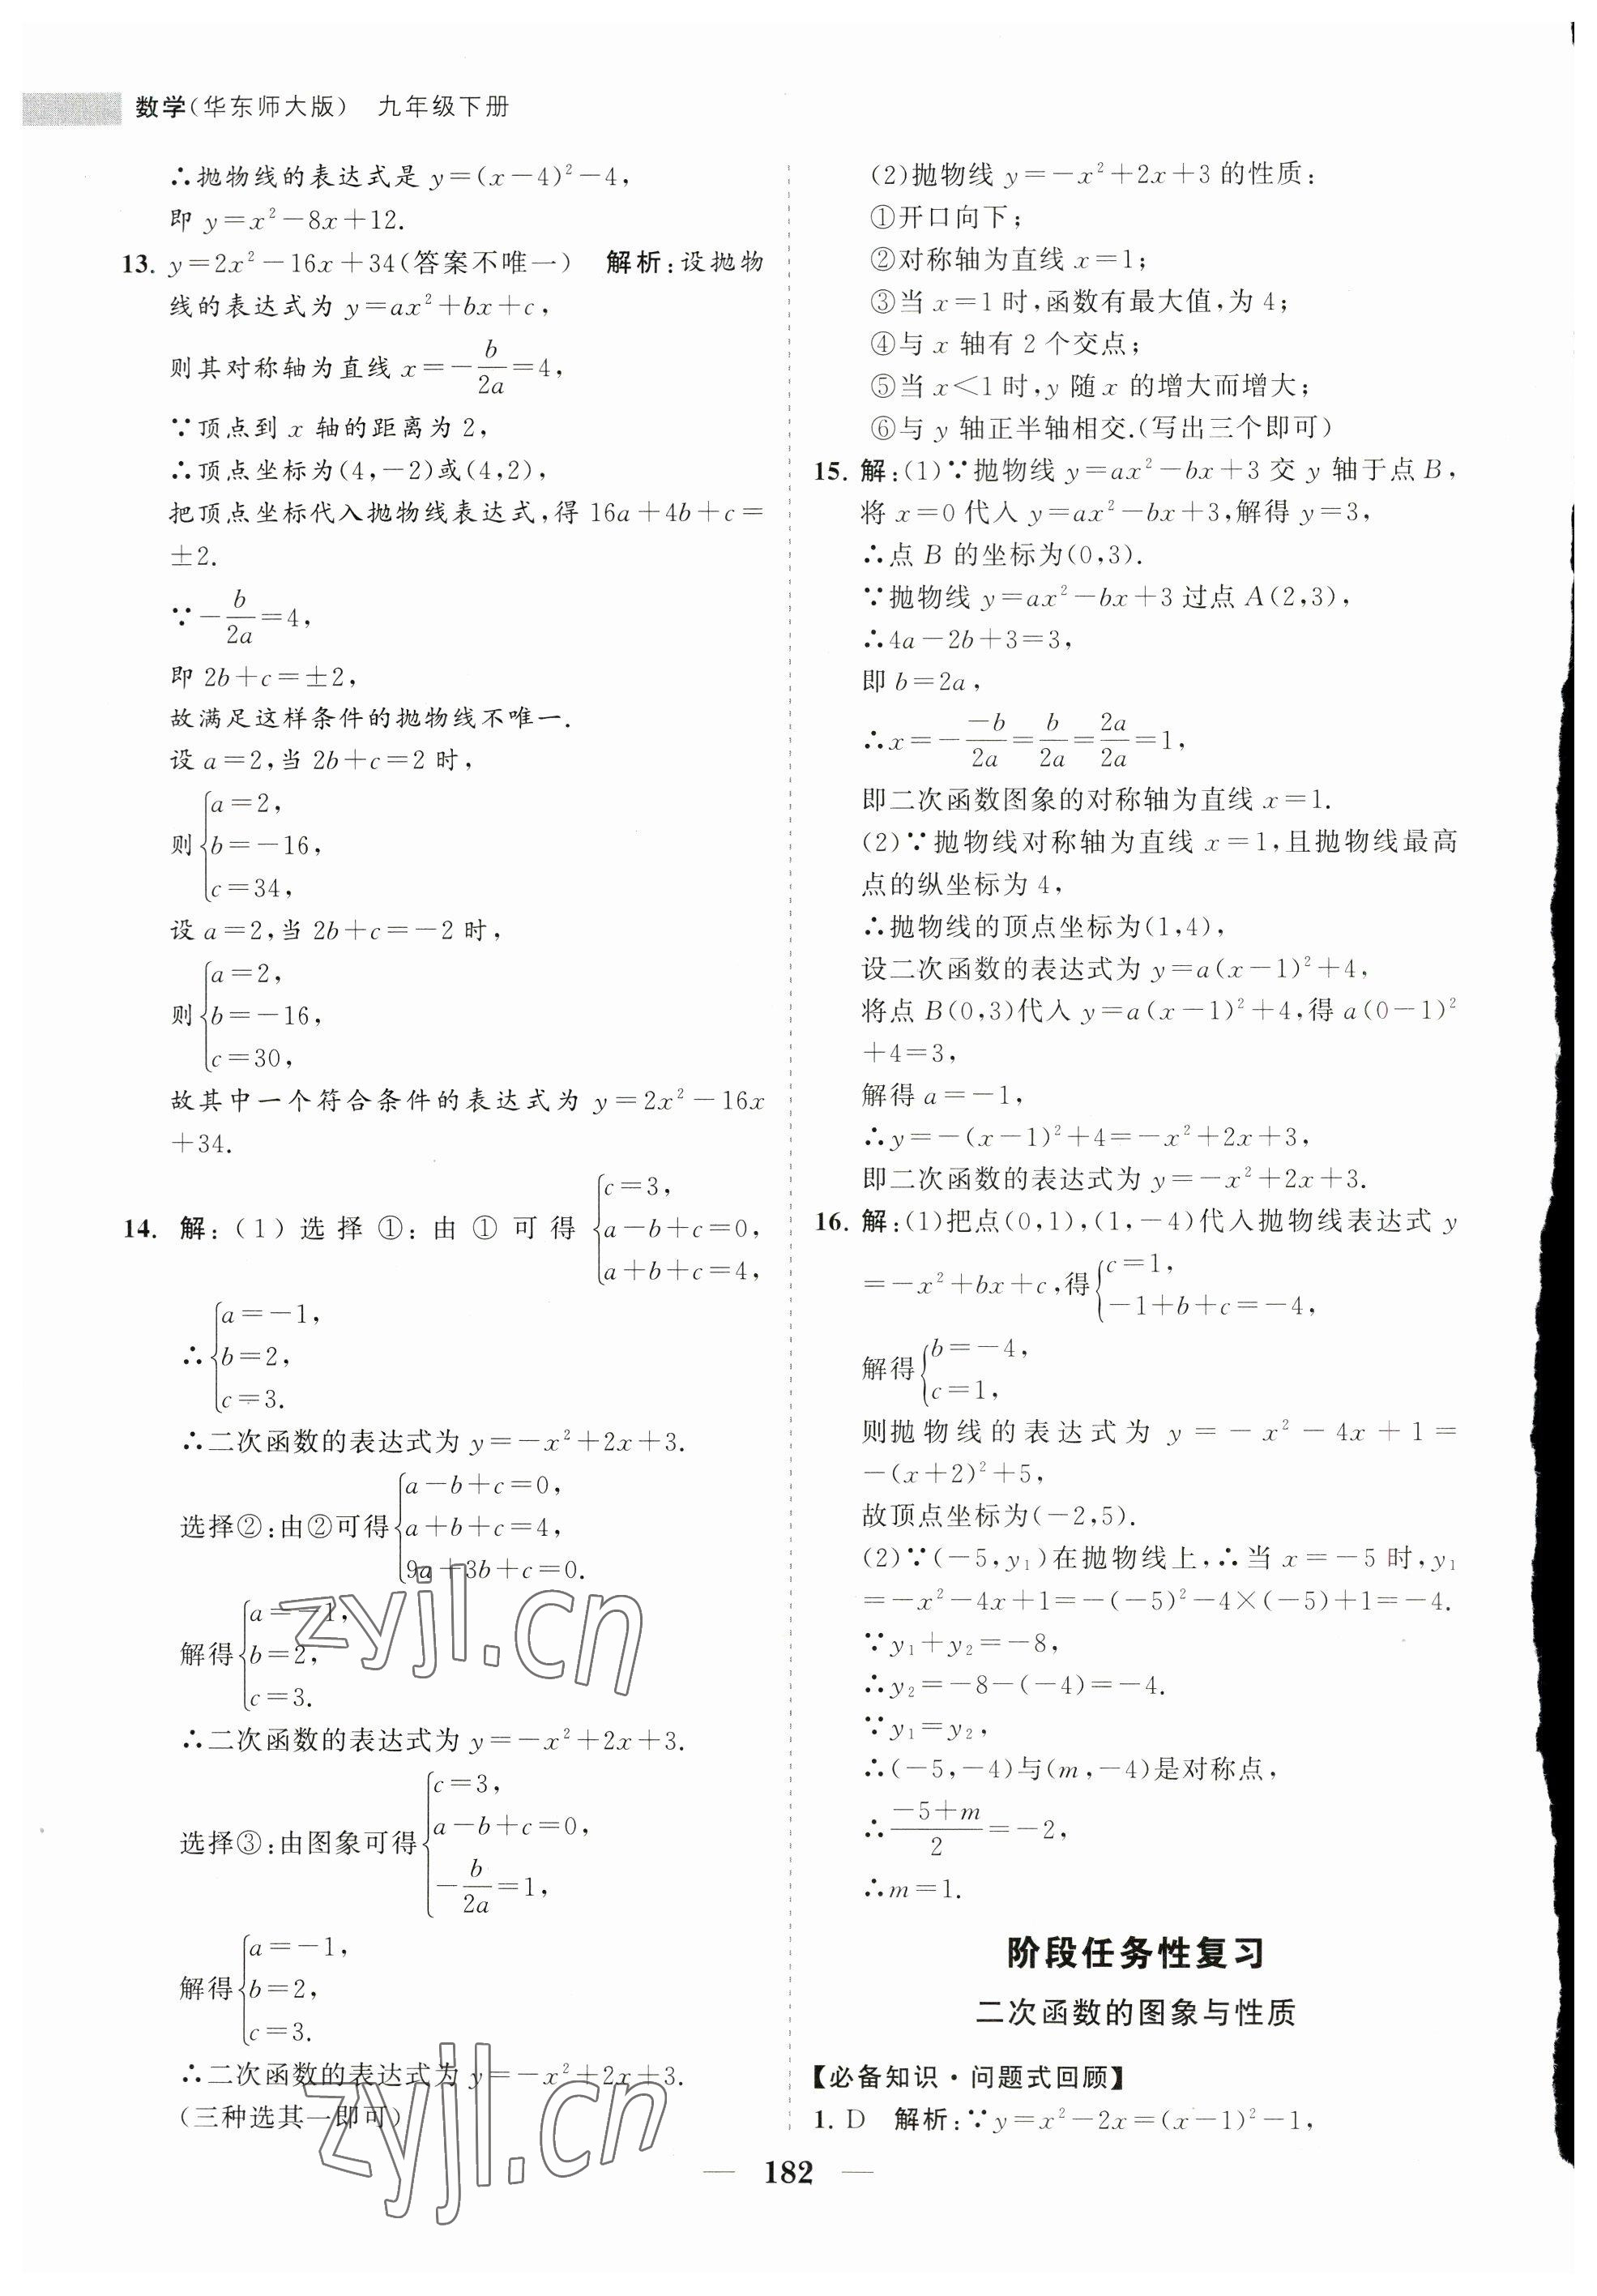 数学(华东师大版) 九年级下册
∴抛物线的表达式是 y=(x-4)²-4,
即 y=x²-8x+12.
13. y=2x²-16x+34(答案不唯一) 解析:设抛物
线的表达式为 y=ax²+bx+c,
则其对称轴为直线 x=-b/2a=4,
∵顶点到 x 轴的距离为 2,
∴顶点坐标为(4,-2)或(4,2),
把顶点坐标代入抛物线表达式,得 16a+4b+c=
±2.
∵-b/2a=4,
即 2b+c=±2,
故满足这样条件的抛物线不唯一.
设 a=2,当 2b+c=2 时,
则{a=2,
b=-16,
c=34,
设 a=2,当 2b+c=-2 时,
则{a=2,
b=-16,
c=30,
故其中一个符合条件的表达式为 y=2x²-16x
+34.
14. 解:(1)选择①:由①可得{c=3,
a-b+c=0,
a+b+c=4,
∴{a=-1,
b=2,
c=3.
∴二次函数的表达式为 y=-x²+2x+3.
选择②:由②可得{a-b+c=0,
a+b+c=4,
9a+3b+c=0.
解得{a=-1,
b=2,
c=3.
∴二次函数的表达式为 y=-x²+2x+3.
选择③:由图象可得{c=3,
a-b+c=0,
-b/2a=1,
解得{a=-1,
b=2,
c=3.
∴二次函数的表达式为 y=-x²+2x+3.
(三种选其一即可)
(2)抛物线 y=-x²+2x+3 的性质:
①开口向下;
②对称轴为直线 x=1;
③当 x=1 时,函数有最大值,为 4;
④与 x 轴有 2 个交点;
⑤当 x<1 时,y 随 x 的增大而增大;
⑥与 y 轴正半轴相交.(写出三个即可)
15. 解:(1)∵抛物线 y=ax²-bx+3 交 y 轴于点 B,
将 x=0 代入 y=ax²-bx+3,解得 y=3,
∴点 B 的坐标为(0,3).
∵抛物线 y=ax²-bx+3 过点 A(2,3),
∴4a-2b+3=3,
即 b=2a,
∴x=--b/2a=b/2a=2a/2a=1,
即二次函数图象的对称轴为直线 x=1.
(2)∵抛物线对称轴为直线 x=1,且抛物线最高
点的纵坐标为 4,
∴抛物线的顶点坐标为(1,4),
设二次函数的表达式为 y=a(x-1)²+4,
将点 B(0,3)代入 y=a(x-1)²+4,得 a(0-1)²
+4=3,
解得 a=-1,
∴y=-(x-1)²+4=-x²+2x+3,
即二次函数的表达式为 y=-x²+2x+3.
16. 解:(1)把点(0,1),(1,-4)代入抛物线表达式 y
=-x²+bx+c,得{c=1,
-1+b+c=-4,
解得{b=-4,
c=1,
则抛物线的表达式为 y=-x²-4x+1=
-(x+2)²+5,
故顶点坐标为(-2,5).
(2)∵(-5,y₁)在抛物线上,∴当 x=-5 时,y₁
=-x²-4x+1=-(-5)²-4×(-5)+1=-4.
∵y₁+y₂=-8,
∴y₂=-8-(-4)=-4.
∵y₁=y₂,
∴(-5,-4)与(m,-4)是对称点,
∴-5+m/2=-2,
∴m=1.
阶段任务性复习
二次函数的图象与性质
【必备知识·问题式回顾】
1. D 解析:∵y=x²-2x=(x-1)²-1,
— 182 —
zyjl.cn
zyjl.cn